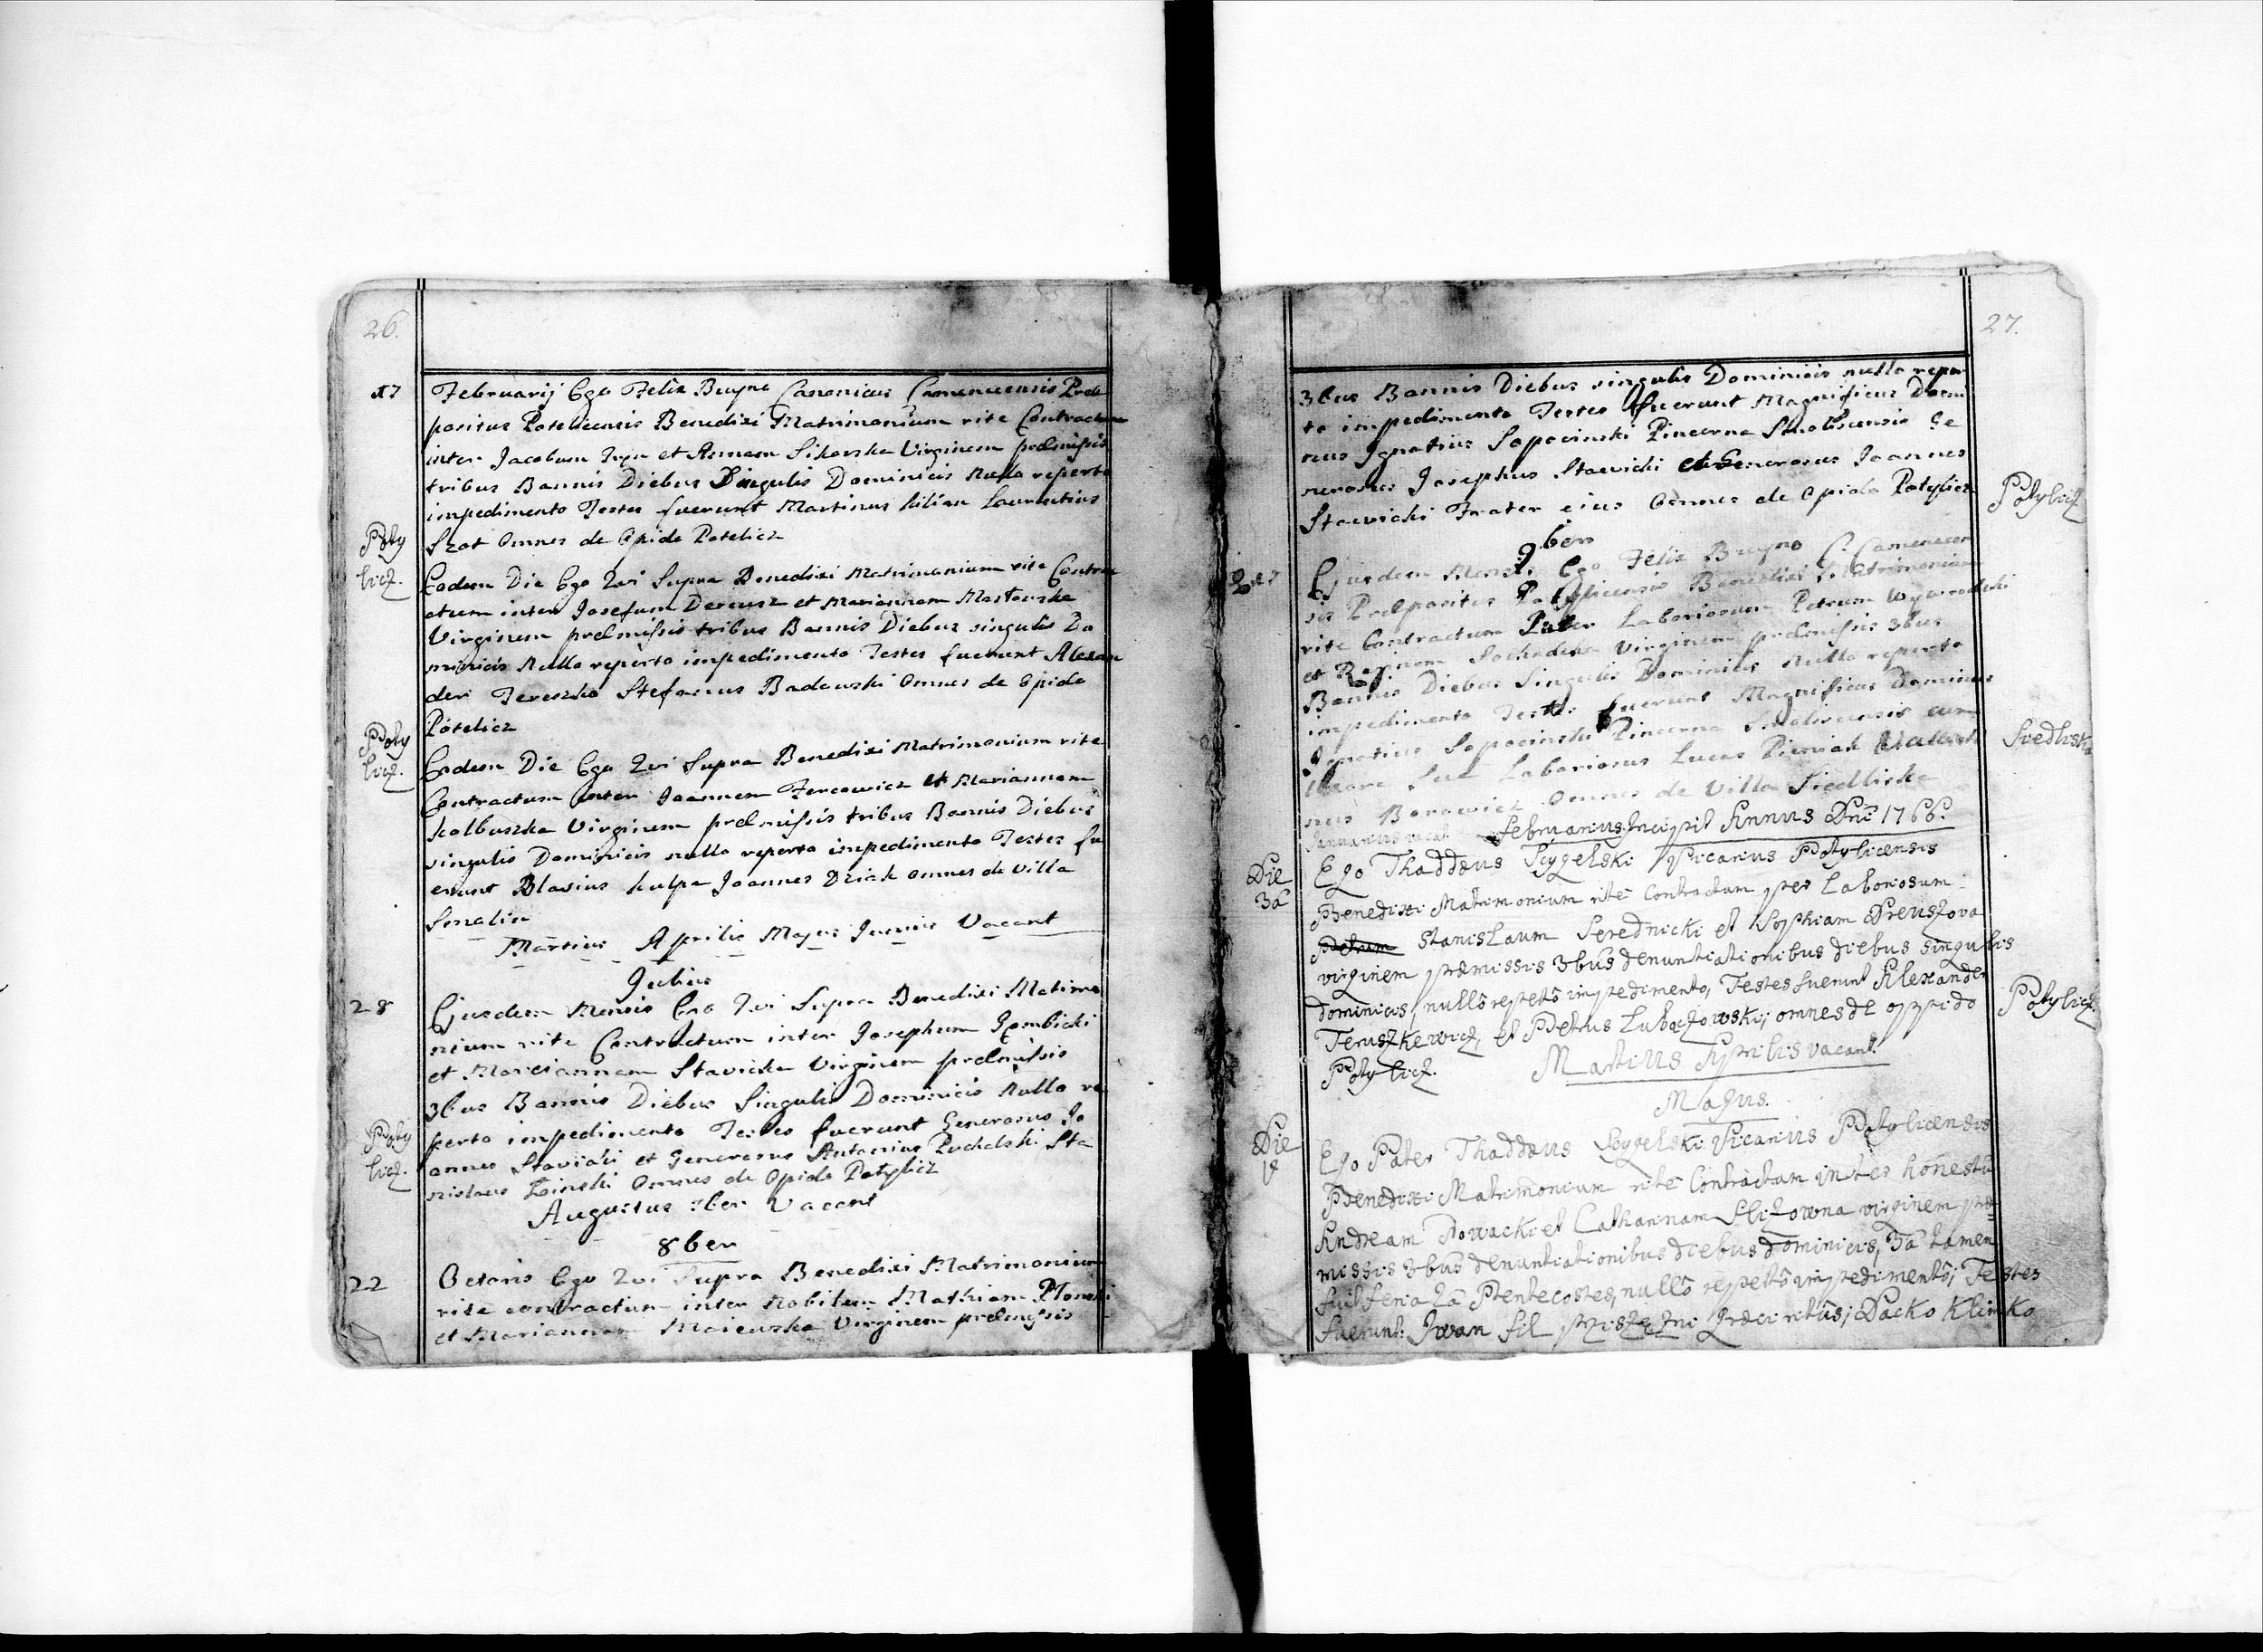 26.
17 Februarij Ego Felix Buyno Canonicus Camenecensis Prae
positus Potelicensis Benedixi Matrimonium rite Contractum
inter Jacobum et Annam Sikorska Virginem praemissis
tribus Bannis Diebus Singulis Dominicis Nullo reperto
impedimento Testes fuerunt Martinus Kilian Laurentius
Szot Omnes de Opido Potelicz
Poty
licz.
Eodem Die Ego Qvi Supra Benedixi Matrimonium rite Contra
ctum inter Josefum Dereusz et Mariannam Mastowska
Virginem praemissis tribus Bannis Diebus singulis Do
minicis Nullo reperto impedimento Testes fuerunt Alexan
der Tereszko Stefanus Badowski Omnes de Opido
Potelicz
Poty
licz.
Eodem Die Ego Qvi Supra Benedixi Matrimonium rite
Contractum inter Joannem Fercowicz et Mariannam
Kolbuszka Virginem praemissis tribus Bannis Diebus
singulis Dominicis nullo reperto impedimento Testes fu
erunt Blasius Kulpa Joannes Dziak omnes de Villa
Smolin
Martius Aprilis Majus Junius Vacant
Julius
28 Ejusdem Mensis Ego Qvi Supra Benedixi Matrimo
nium rite Contractum inter Josephum Zembicki
et Mariannam Stavicka Virginem praemissis
3bus Bannis Diebus Singulis Dominicis Nullo re
perto impedimento Testes fuerunt Generosus Jo
annes Stavicki et Generosus Antonius Puchalski Sta
nislaus Omnes de Opido Potylicz
Poty
licz.
Augustus 7ber Vacant
8ber
22 Octobris Ego Qvi Supra Benedixi Matrimonium
rite contractum inter Nobilem Mathiam Plonski
et Mariannam Maiewska Virginem praemissis
27.
3bus Bannis Diebus singulis Dominicis nullo reper
to impedimento Testes fuerunt Magnificus Domi
nus Ignatius Sopocinski Pincerna Ge
nerosus Josephus Stawicki et Generosus Joannes
Stawicki Frater eius Omnes de Opido Potylicz
Potylicz
9ber
Ejusdem Mensis Ego Felix Buyno C. Camenecen
sis Praepositus Potylicensis Benedixi Matrimonium
rite Contractum Inter Laboriosum Petrum
et Virginem praemissis 3bus
Bannis Diebus Singulis Dominicis Nullo reperto
impedimento Testes fuerunt Magnificus Dominus
Ignatius Sopocinski Pincerna cum
Uxore Sua Laboriosus Lucas Pieniak
Borowicz Omnes de Villa Siedliska
Siedliska
Januarius vacat. Februarius Incipit Annus Dni 1766.
Die
3a
Ego Thaddaeus Scygelski Vicarius Potylicensis
Benedixi Matrimonium rite Contractum per Laboriosum
Petrum Stanislaum Serednicki et Sophiam Dreuszova
virginem praemissis 3bus denuntiationibus diebus singulis
dominicis, nullo reperto impedimento, Testes fuerunt Alexander
Teruszkewicz, et Petrus Lubaczowski; omnes de oppido
Potylicz.
Potylicz.
Martius Aprilis vacant.
Majus.
Die
Ego Pater Thaddaeus Scygelski Vicarius Potylicensis
Benedixi Matrimonium rite Contractum inter honestum
Andream Nowacki et Catharinam Slizowna virginem prae
missis 3bus denuntiationibus diebus dominicis, 3a tamen
fuit feria 2a Pentecostes, nullo reperto impedimento; Testes
fuerunt: Iwan fil graeci ritus; Dacko Klimko